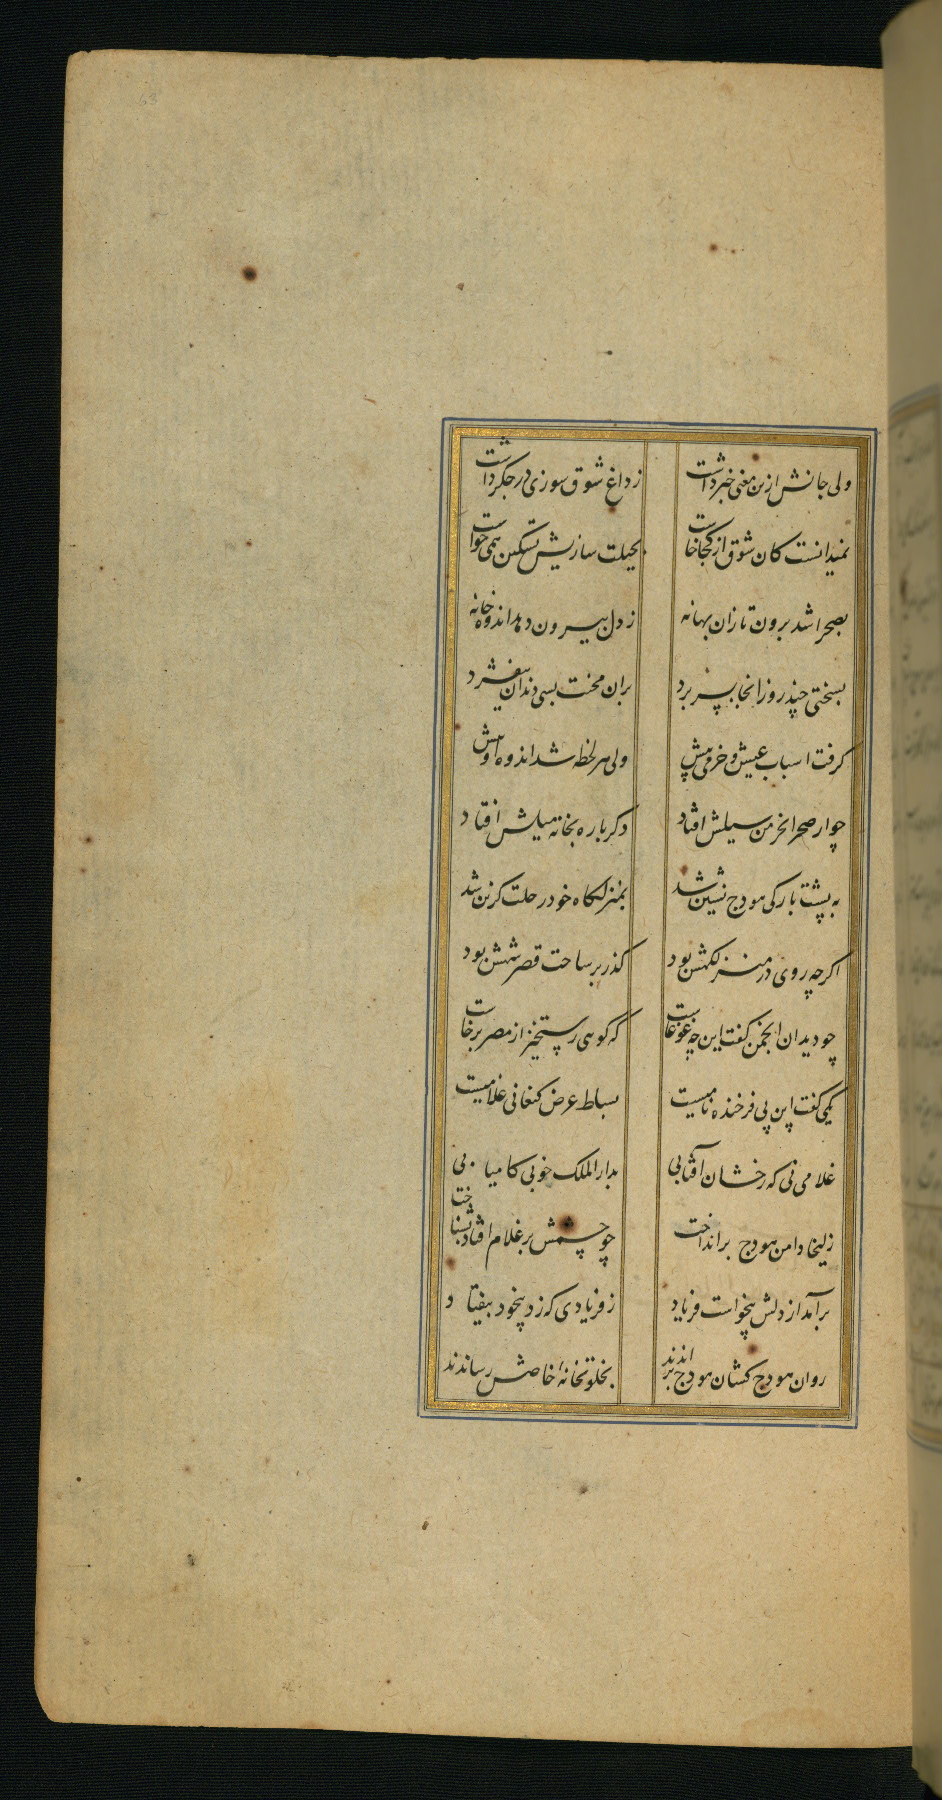 ولی جانش ازین معنی خبر داشت
ز داغ شوق سوزی در جکر داشت
نمیدانست کان شوق از کجا خاست
بحیلت سازیش تسکین همی خواست
بصحرا شد برون تا زان بهانه
ز دل بیرون دهد اندوه خانه
بسختی چند روز انجا بسر برد
بران محنت بسی دندان بیفشرد
کرفت اسباب عیش و خرمی پیش
ولی هر لحظه شد اندوه او بیش
چو از صحرا بخرمن سیلش افتاد
دکر باره بخانه میلش افتاد
به پشت بارکی هودج نشین شد
بمنزلکاه خود رحلت کزین شد
اکرچه روی در منزلکهش بود
کذر بر ساحت قصر شهش بود
چو دید ان انجمن کفت این چه غوغاست
که کویی رستخیز از مصر برخاست
یکی کفت این پی فرخنده نامیست
بساط عرض کنعانی غلامیست
غلامی نی که رخشان آفتابی
بدار الملک خوبی کامیابی
زلیخا دامن هودج برانداخت
چو چشمش بر غلام افتاد بشناخت
برآمد از دلش بیخواست فریاد
ز فریادی که زد بیخود بیفتاد
روان هودج کشان هودج براندند
بخلوتخانهٔ خاصش رساندند